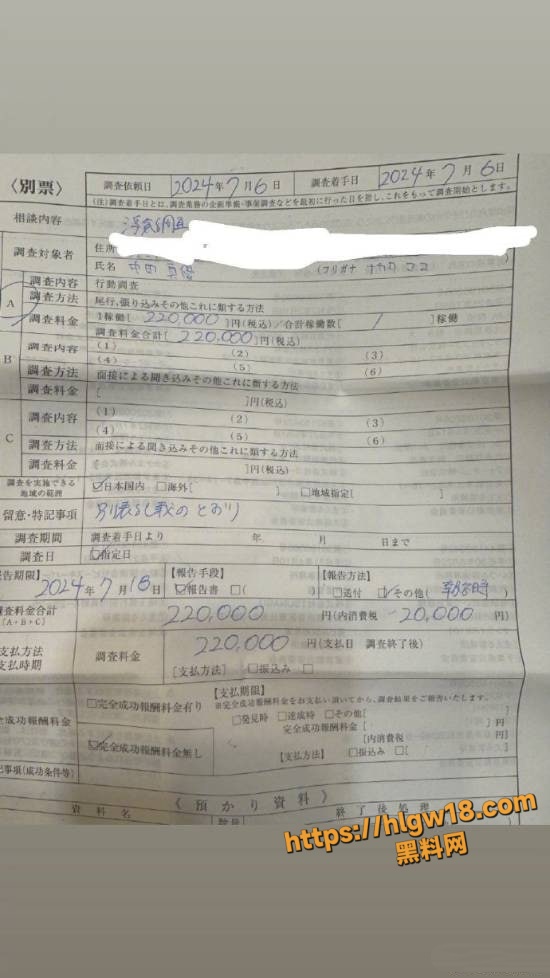 〈別票〉
調査依頼日 2024年7月6日 調査着手日 2024年7月6日
(注)調査着手日とは、調査業務の企画準備・事前調査などを最初に行った日を指し、これをもって調査開始とします。
相談内容 浮気調査
調査対象者
住所
氏名 (フリガナ
A
調査内容 行動調査
調査方法 尾行、張り込みその他これに類する方法
調査料金 1稼働[220,000]円(税込)/合計稼働数[ / ]稼働
調査料金合計[220,000]円(税込)
B
調査内容 (1) (2) (3)
(4) (5) (6)
調査方法 面接による聞き込みその他これに類する方法
調査料金 [ ]円(税込)
C
調査内容 (1) (2) (3)
(4) (5) (6)
調査方法 面接による聞き込みその他これに類する方法
調査料金 ]円(税込)
調査を実施できる地域の範囲 ☑日本国内 □海外[ ] □地域指定[ ]
留意・特記事項 とおり
調査期間 調査着手日より 年 月 日まで
調査日 ☑指定日
報告期限】 【報告手段】 【報告方法】
2024年7月18日 ☑報告書 □( □送付 ☑その他(
調査料金合計 220,000 円(内消費税 20,000 円)
[A+B+C]
支払方法
支払時期
調査料金 220,000 円(支払日 調査終了後)
[支払方法] □振込み □
完全成功報酬料金
□完全成功報酬料金有り
【支払期限】
※完全成功報酬料金をお支払い頂いてから、調査結果をご報告いたします。
□発見時 □達成時 □その他[ ]
完全成功報酬料金[ ]円
[内消費税 ]円
☑完全成功報酬料金無し
【支払方法】 □振込み □[ ]
記事項(成功条件等)
《預かり資料》
資料名 数量 終了後処理
https://hlgw18.com
黑料网